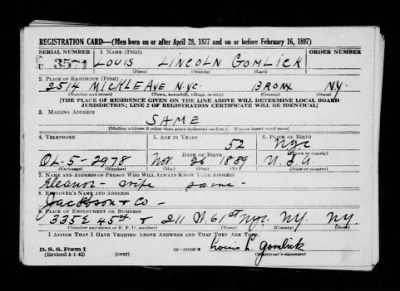 REGISTRATION CARD—(Men born on or after April 28, 1877 and on or before February 16, 1897)
SERIAL NUMBER 1. NAME (Print) ORDER NUMBER
U 3571 LOUIS LINCOLN GOMLICK
(First) (Middle) (Last)
2. PLACE OF RESIDENCE (Print)
2514 MICKLE AVE N.Y.C. BRONX N.Y.
(Number and street) (Town, township, village, or city) (County) (State)
[THE PLACE OF RESIDENCE GIVEN ON THE LINE ABOVE WILL DETERMINE LOCAL BOARD
JURISDICTION; LINE 2 OF REGISTRATION CERTIFICATE WILL BE IDENTICAL]
3. MAILING ADDRESS
SAME
[Mailing address if other than place indicated on line 2. If same insert word same]
4. TELEPHONE 5. AGE IN YEARS 6. PLACE OF BIRTH
52 Nyc
OL-5-2978 DATE OF BIRTH Nov. 26 1889 U.S.A
7. NAME AND ADDRESS OF PERSON WHO WILL ALWAYS KNOW YOUR ADDRESS
Eleanor - wife same -
8. EMPLOYER'S NAME AND ADDRESS
Jackson & Co -
9. PLACE OF EMPLOYMENT OR BUSINESS
335 E 45th & 211 61st Nyc. NY. NY.
(Number and street or R. F. D. number) (Town) (County) (State)
I AFFIRM THAT I HAVE VERIFIED ABOVE ANSWERS AND THAT THEY ARE TRUE.
D. S. S. Form 1
(Revised 4-1-42) Louis L. Gomlick